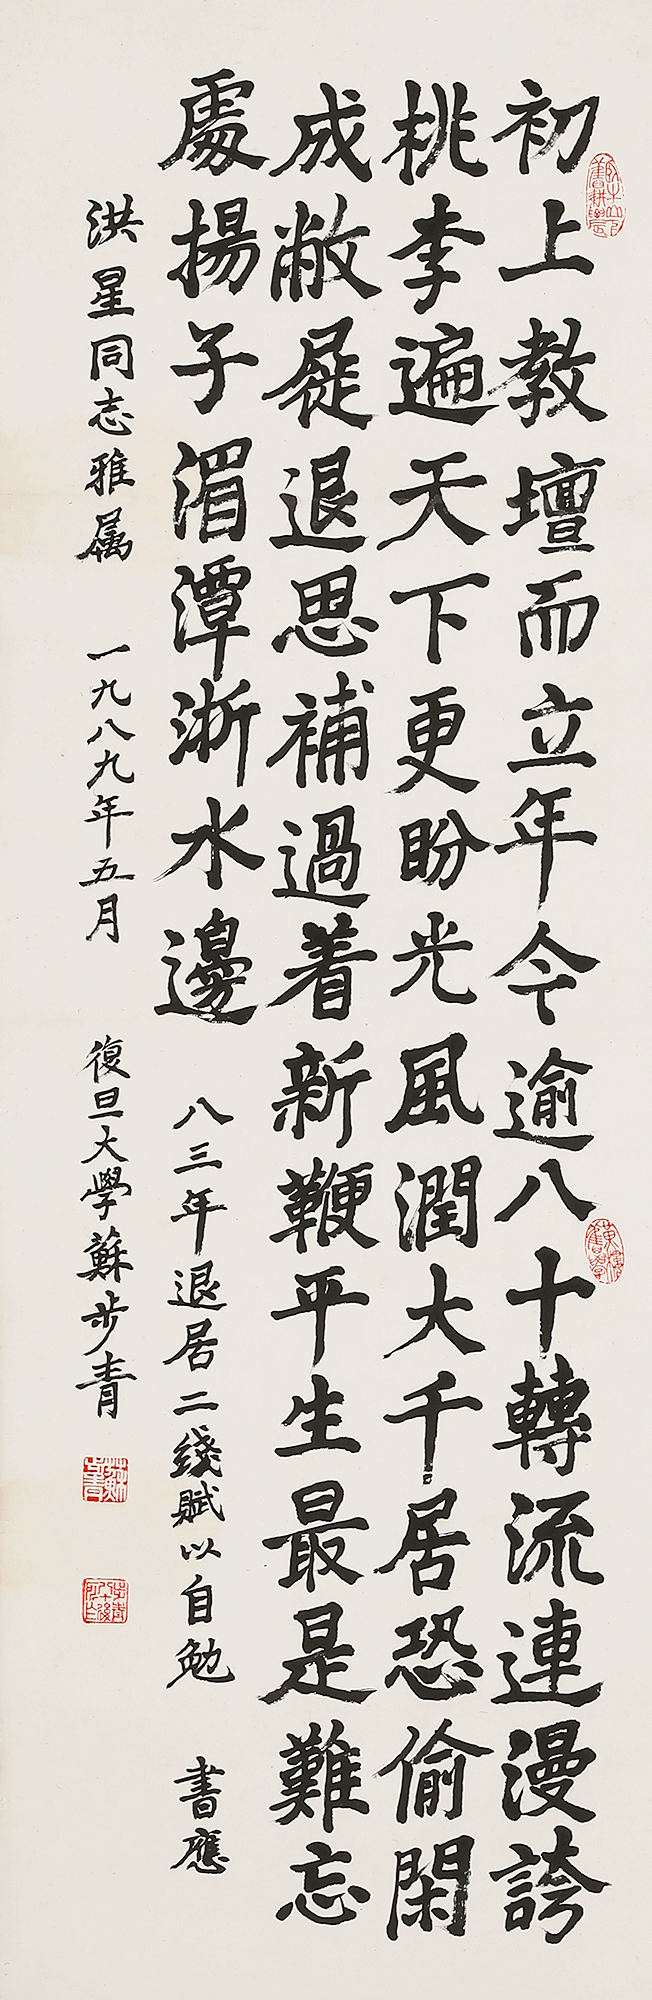 初上教壇而立年今逾八十轉流連漫誇
桃李遍天下更盼光風潤大千居恐偷閑
成敝屣退思補過着新鞭平生最是難忘
處揚子湄潭浙水邊
八三年退居二綫賦以自勉 書應
洪星同志雅属 一九八九年五月 復旦大學蘇步青